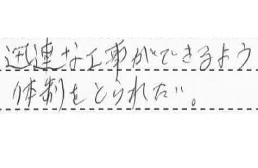 迅速な工事ができるよう
体制をとられたい。